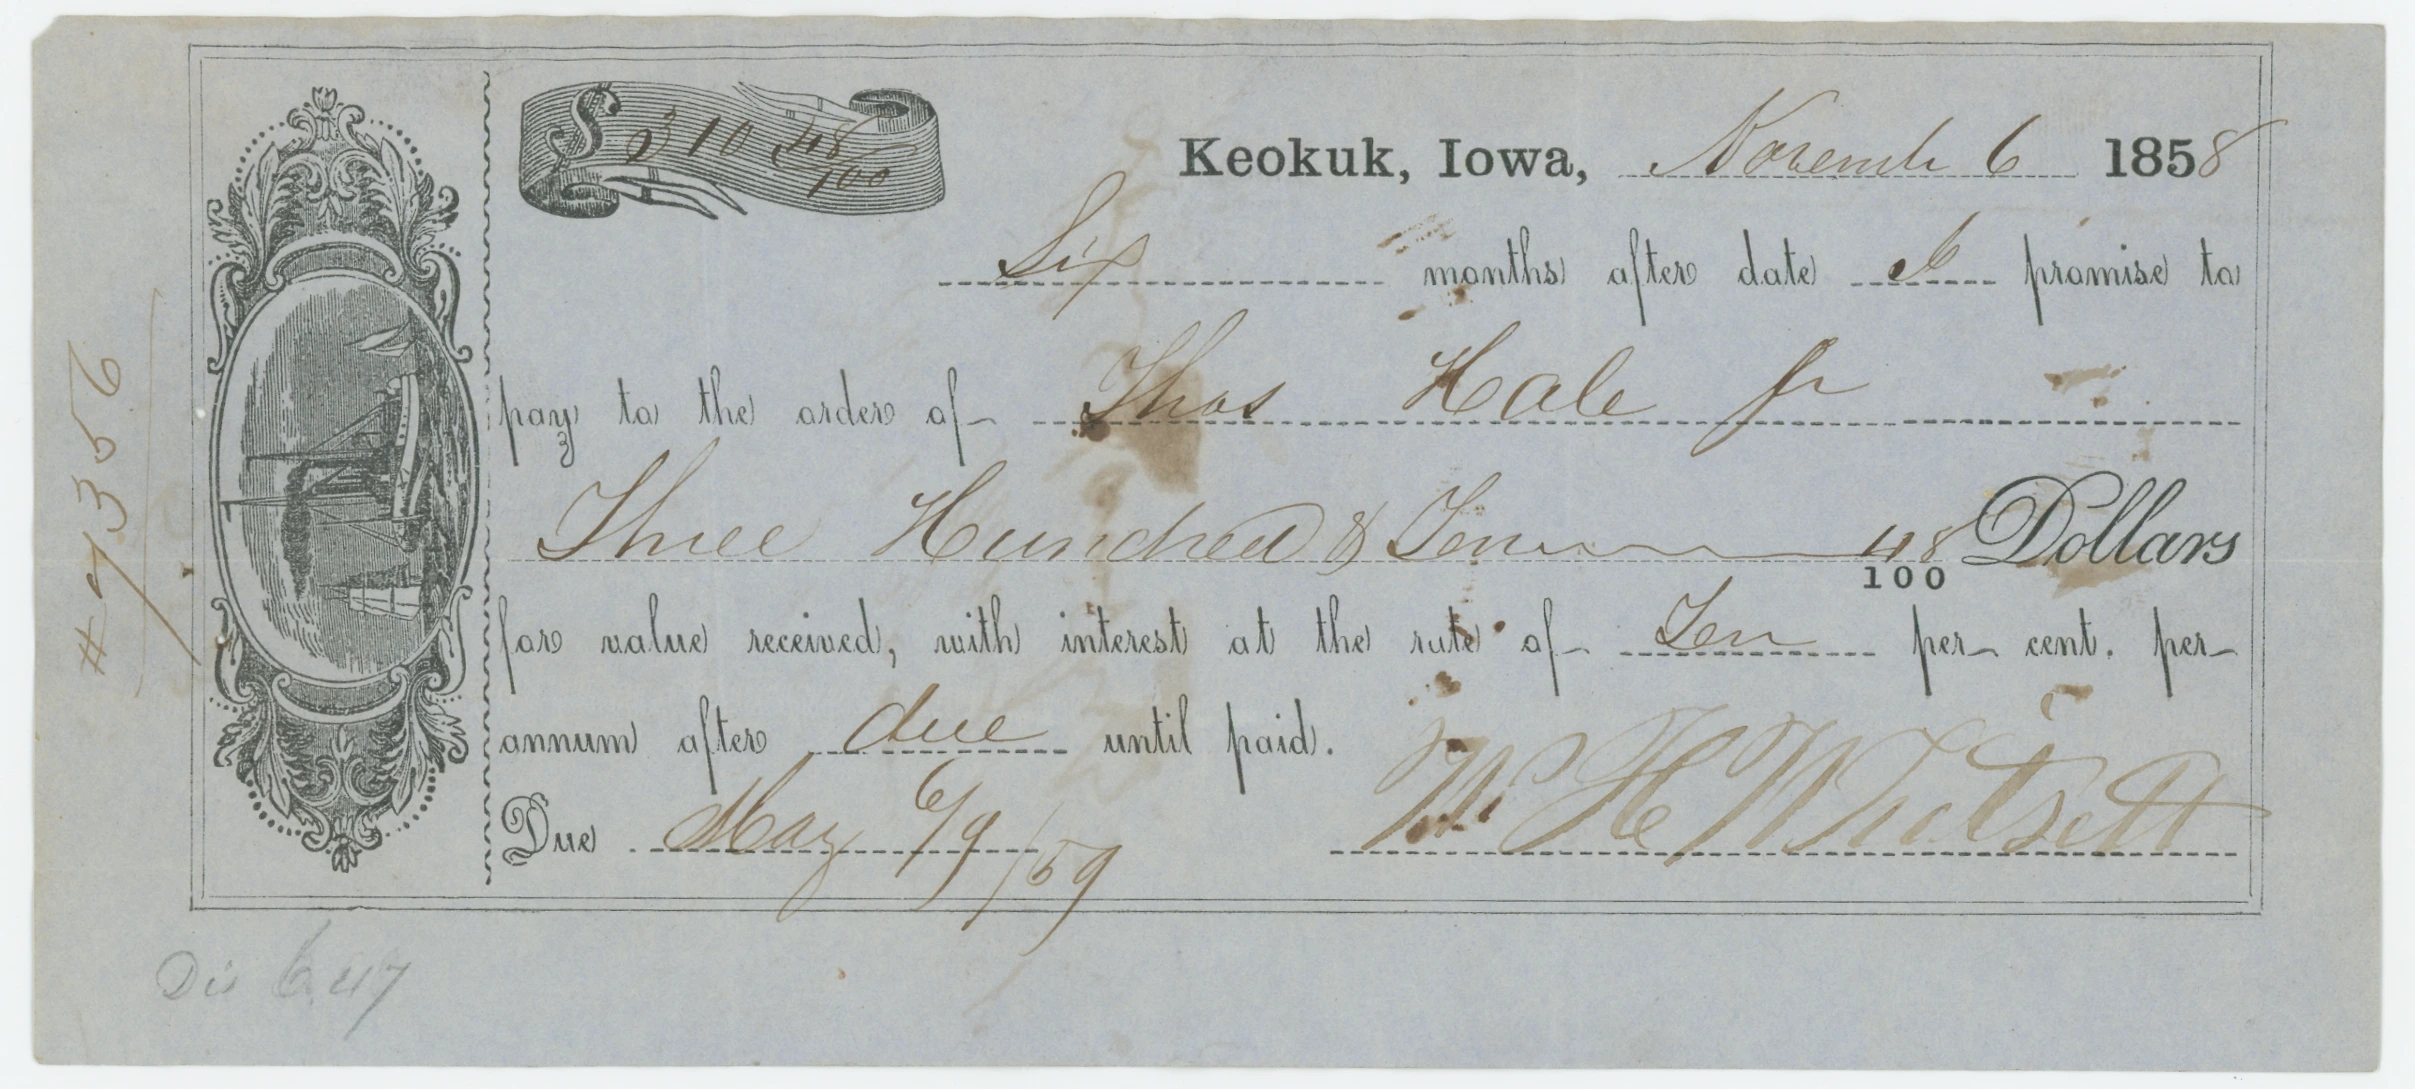 $ 310 48/100
Keokuk, Iowa, Novemb 6 1858
Six months after date I promise to
pay to the order of Thos Hale Jr
Three Hundred & Ten 48/100 Dollars
for value received, with interest at the rate of Ten per cent. per
annum after due until paid.
Due May 6/9 /59 W H Whetsett
# 7356
Dis 6.47